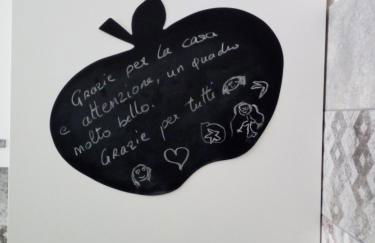 Grazie per la casa
e attenzione, un quadro
molto bello.
Grazie per tutti